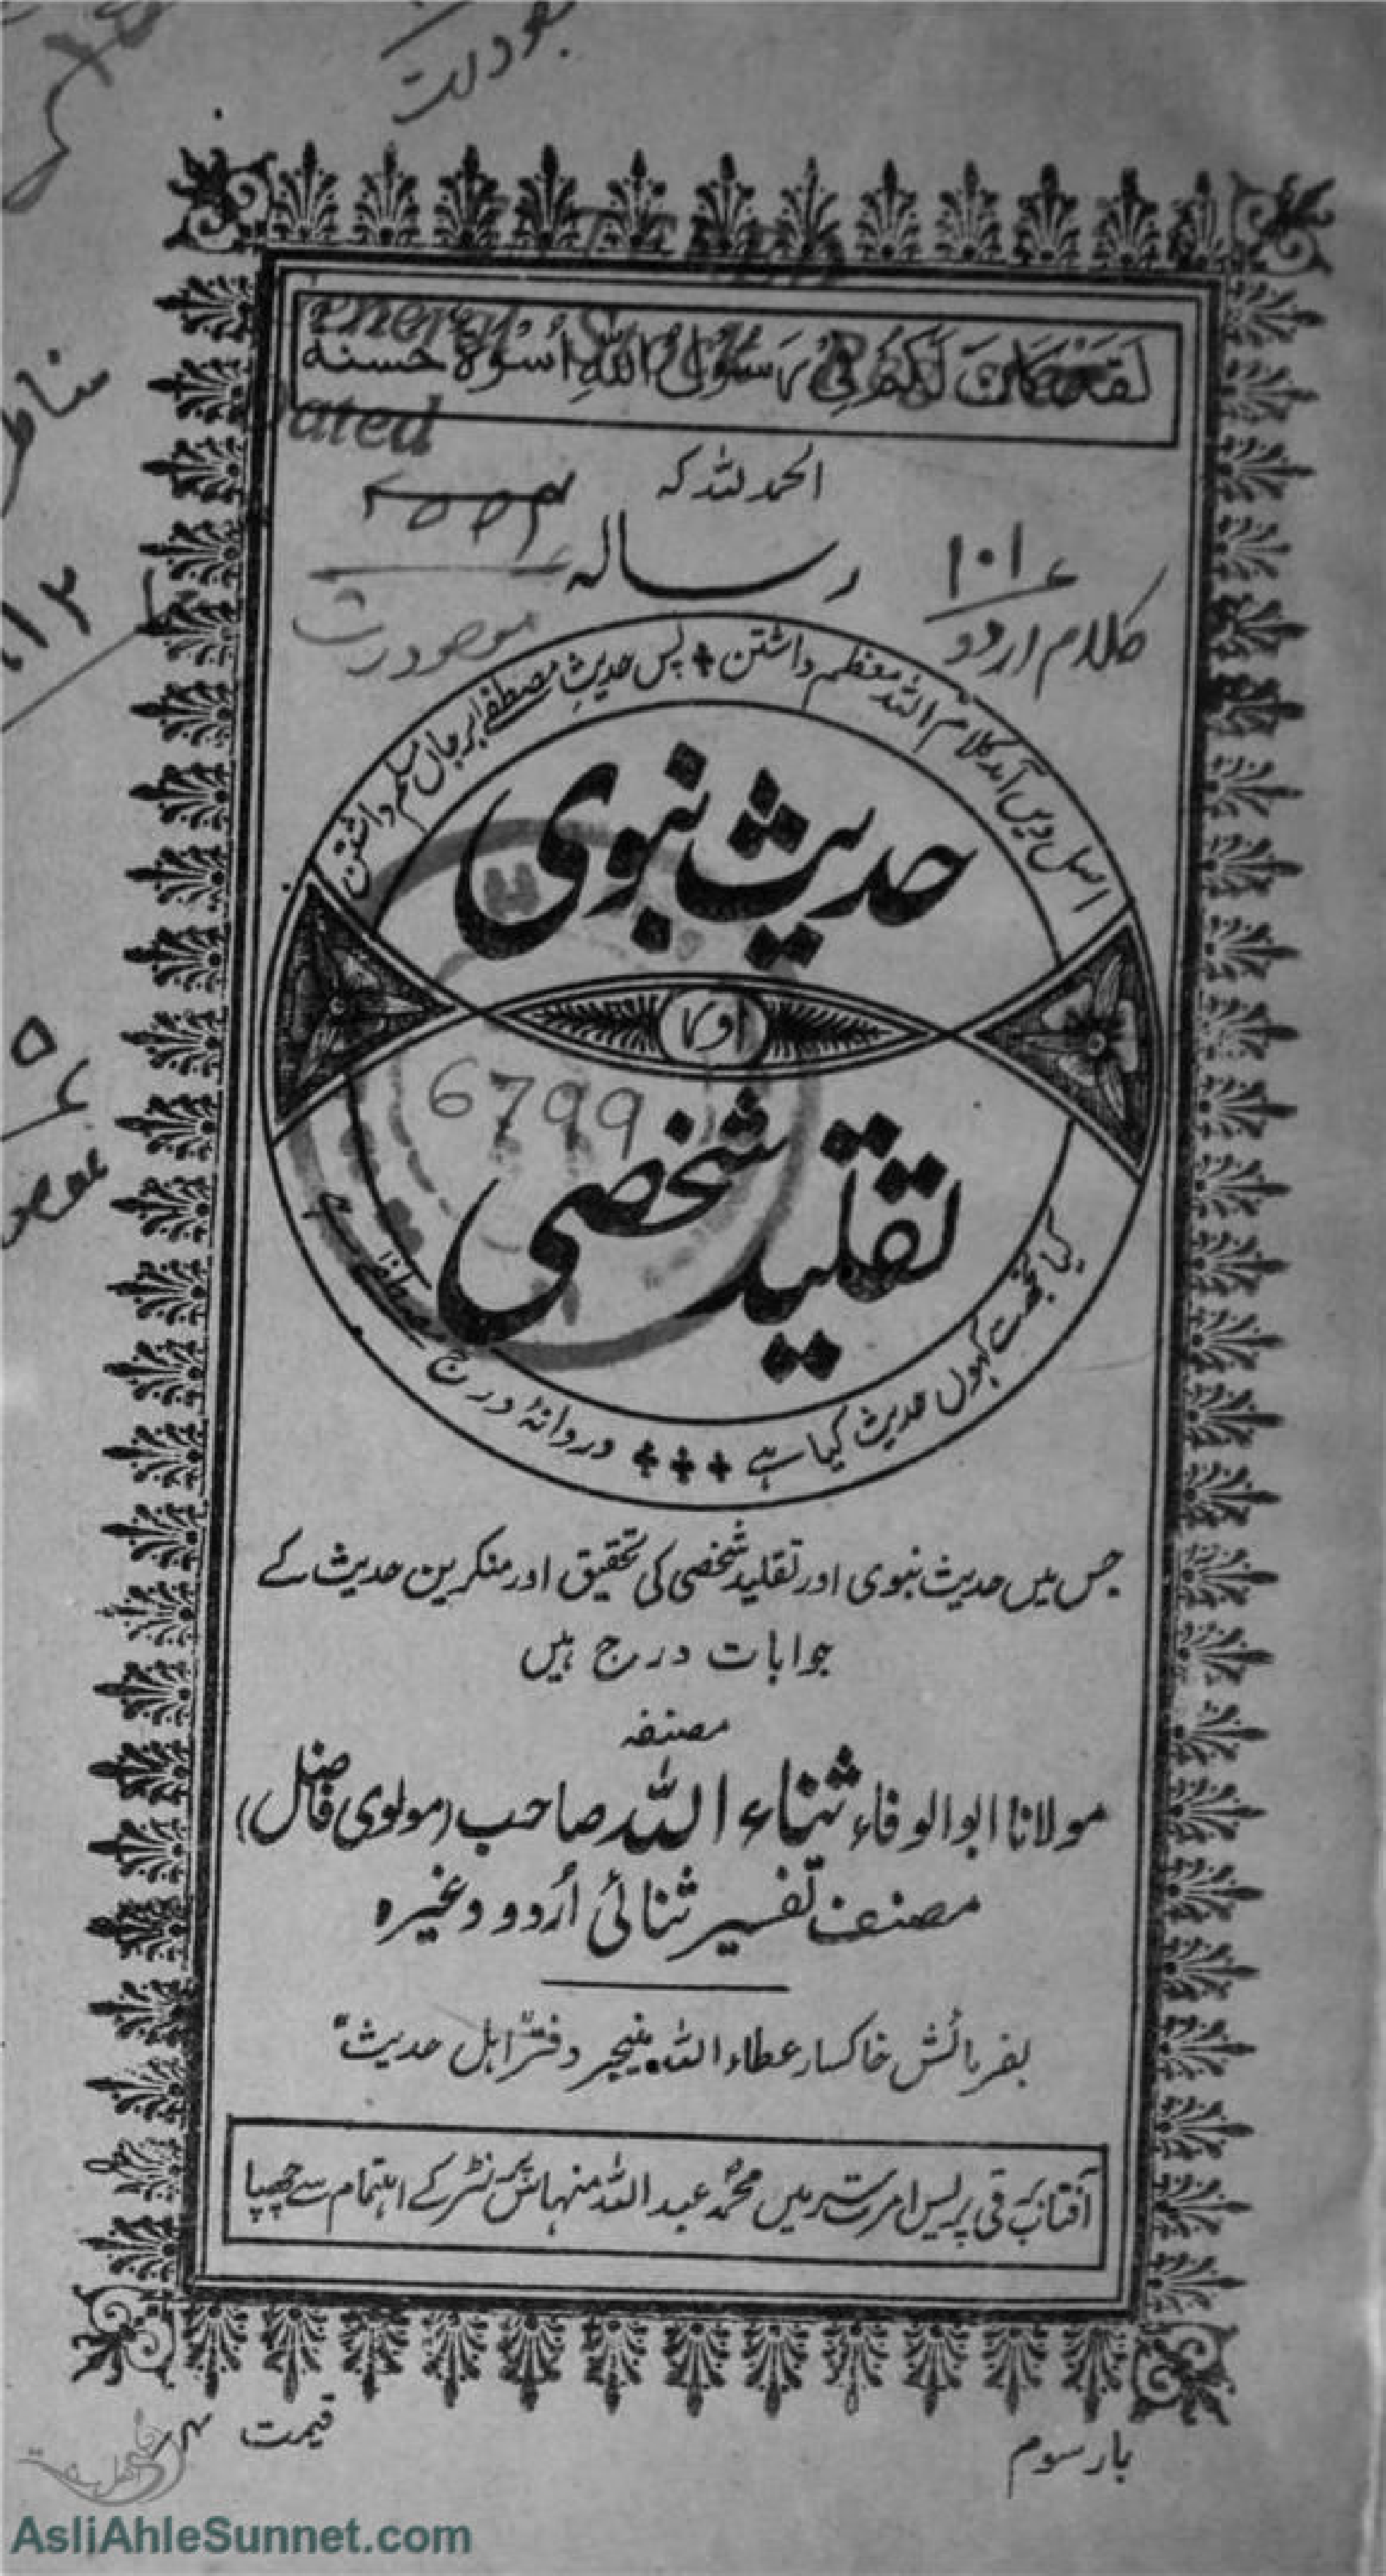 بودلت
لَقَدْ كَانَ لَكُمْ فِي رَسُوْلِ اللّٰهِ اُسْوَةٌ حسنه
ated
الحمد للہ کہ
رسالہ
۱۰۱ء
کلام اردو
اصل دیں آمد کلام اللہ معظم داشتن + پس حدیثِ مصطفےٰ بر جاں مسلم داشتن
حدیث نبوی
اور
6799
تقلید شخصی
کیا تجھ سے کہوں حدیث کیا ہے +++ دردانۂ درج مصطفےٰ ہے
جس میں حدیث نبوی اور تقلید شخصی کی تحقیق اور منکرین حدیث کے
جوابات درج ہیں
مصنفہ
مولانا ابوالوفاء ثناء اللہ صاحب (مولوی فاضل)
مصنف تفسیر ثنائی اُردو وغیرہ
بفرمائش خاکسار عطاء اللہ منیجر دفتر "اہل حدیث"
آفتاب برقی پریس امرتسر میں محمد عبد اللہ منہاس پرنٹر کے اہتمام سے چھپا
بار سوم
قیمت ۴ر
AsliAhleSunnet.com